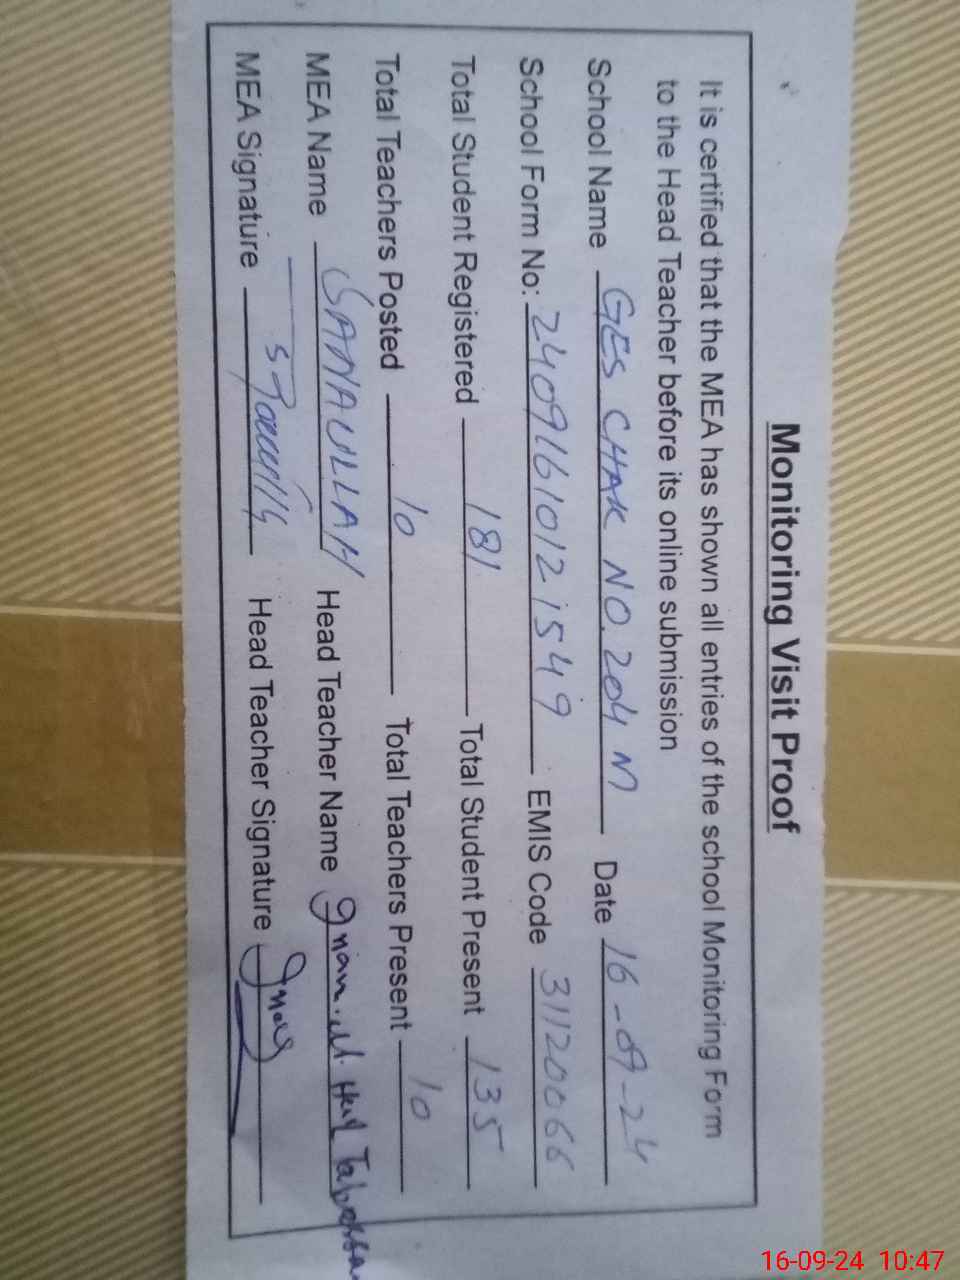 Monitoring Visit Proof
It is certified that the MEA has shown all entries of the school Monitoring Form
to the Head Teacher before its online submission
School Name GES CHAK NO. 204 M Date 16-09-24
School Form No: 2409161012 1549 EMIS Code 31120066
Total Student Registered 181 Total Student Present 135
Total Teachers Posted 10 Total Teachers Present 10
MEA Name SANAULLAH Head Teacher Name
MEA Signature Head Teacher Signature
16-09-24 10:47